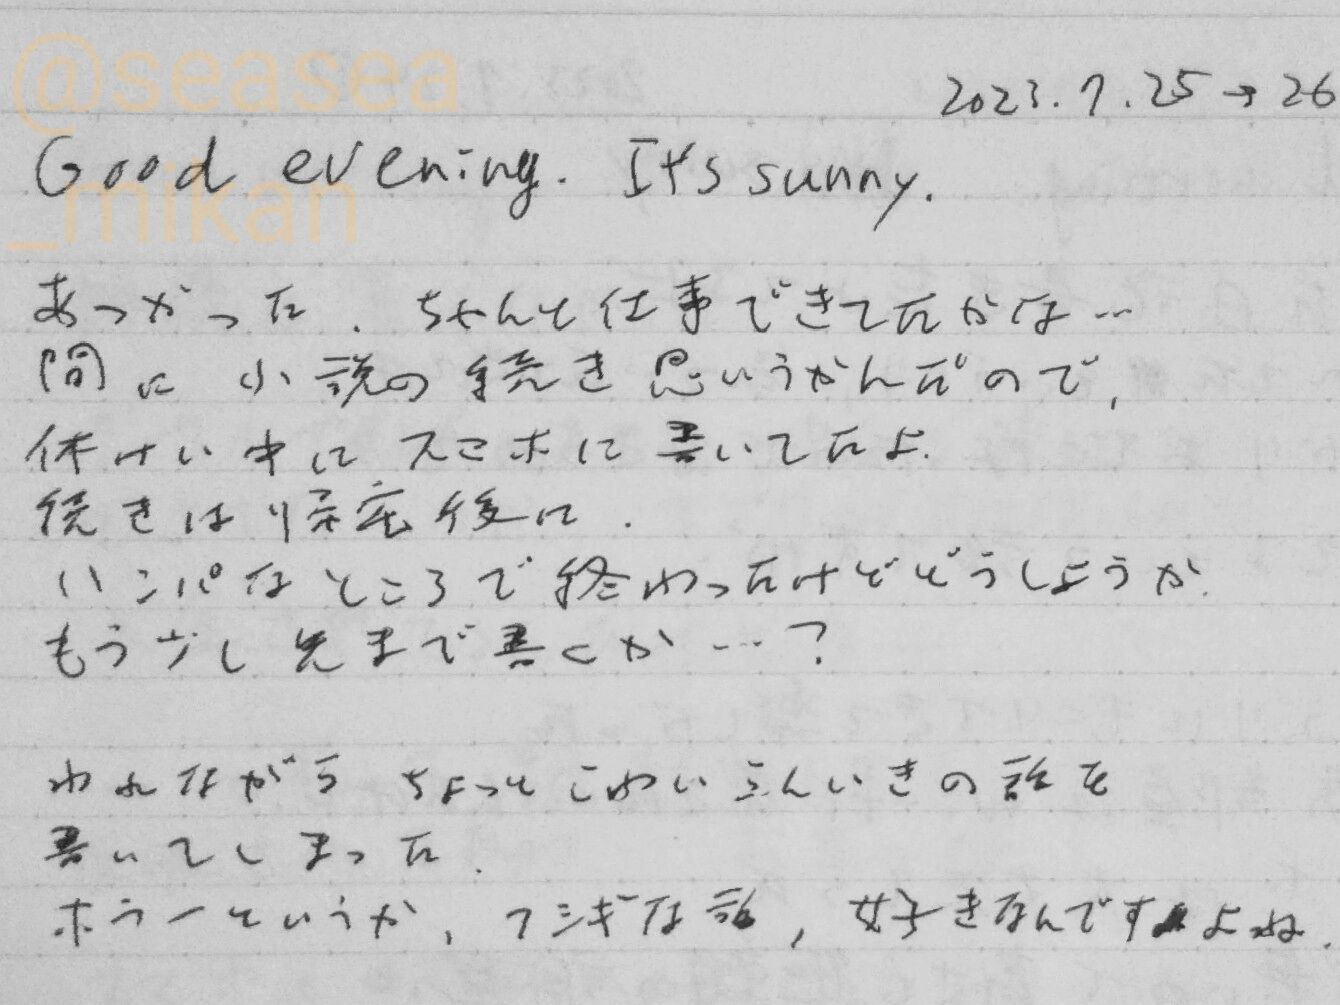 @seasea
_mikan
2023.7.25→26
Good evening. It's sunny.
あつかった。ちゃんと仕事できてたかな…
間に小説の続き思いうかんだので、
休けい中にスマホに書いてたよ。
続きは帰宅後に。
ハンパなところで終わったけどどうしようか。
もう少し先まで書くか…?
われながらちょっとこわいふんいきの話を
書いてしまった。
ホラーというか、フシギな話、好きなんですよね。